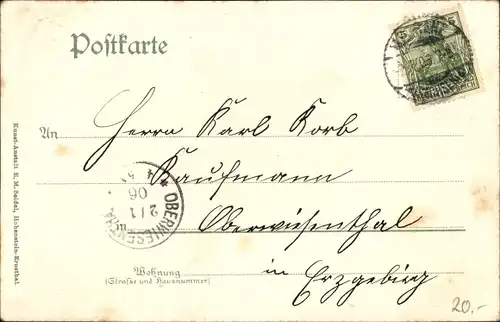 Postkarte
An Herrn Karl Korb
Kaufmann
in Oberwiesenthal
in Erzgebirg
Wohnung
(Strasse und Hausnummer)
Kunst-Anstalt E. M. Seidel, Hohenstein-Ernstthal.
* OBERWIESENTHAL
2/1
06
20.-